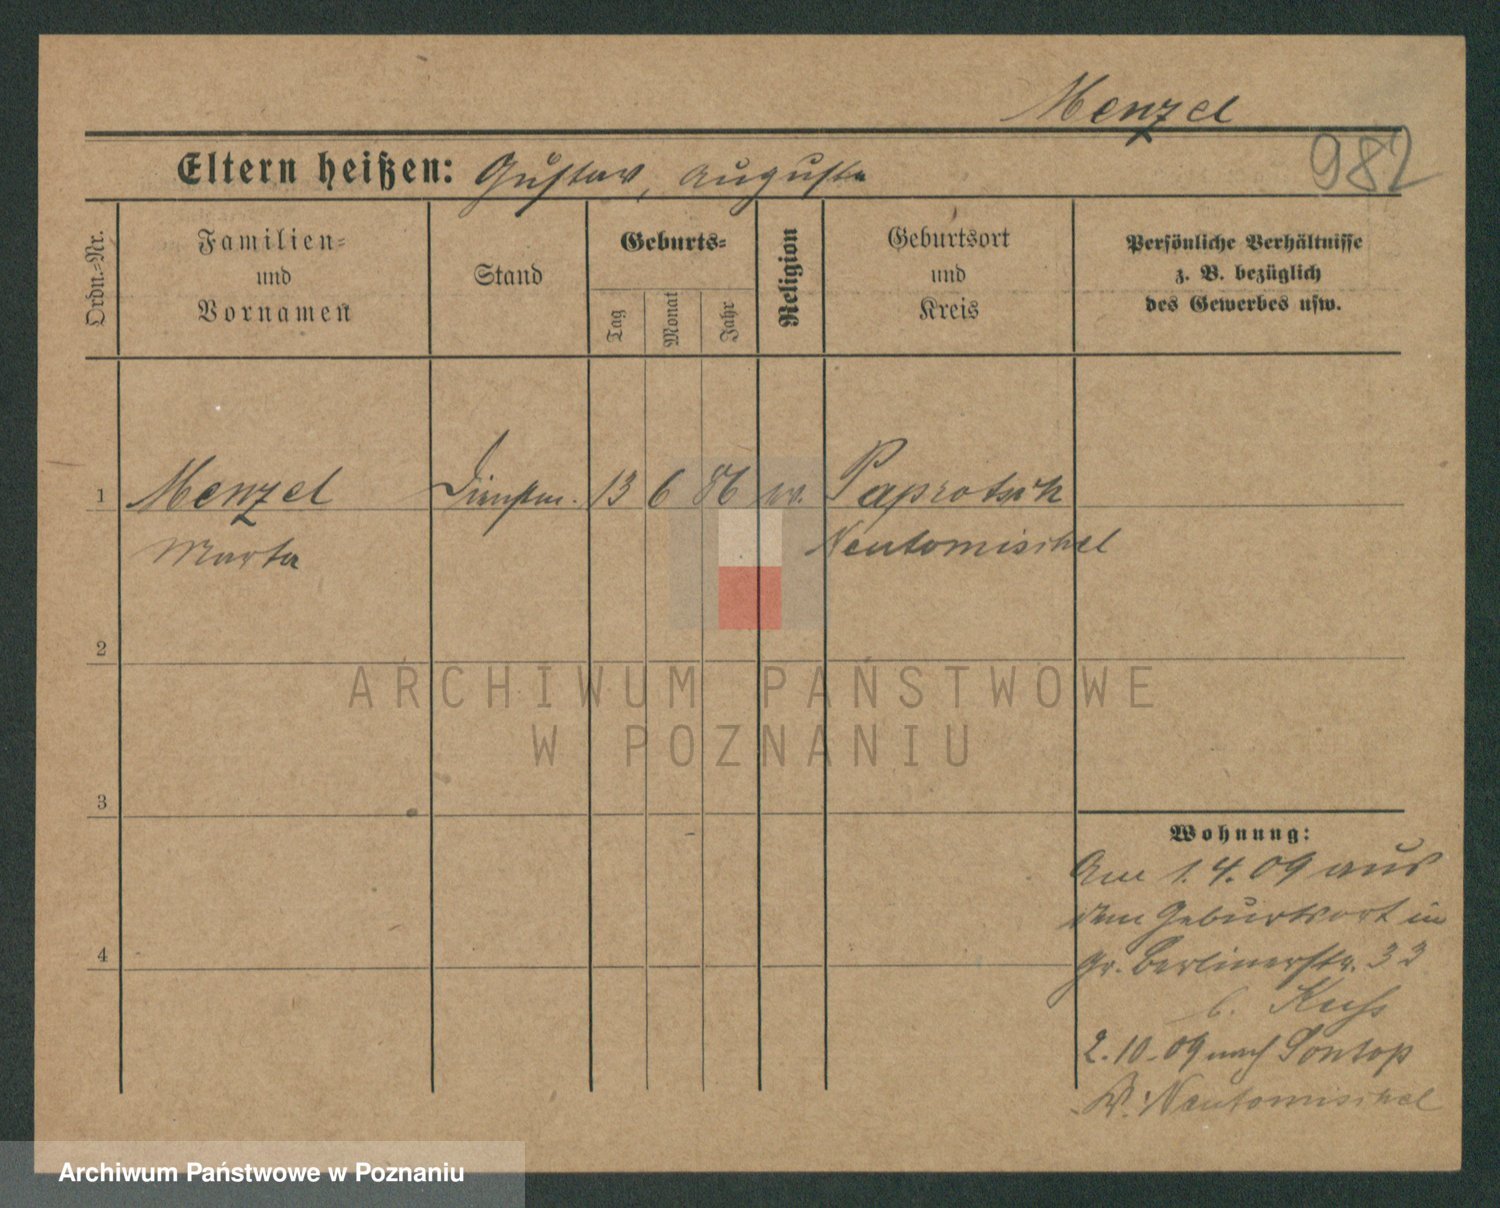 Menzel
982
Eltern heißen: Gustav, Auguste
Ordn.-Nr.
Familien-
und
Vornamen
Stand
Geburts-
Tag
Monat
Jahr
Religion
Geburtsort
und
Kreis
Persönliche Verhältnisse
z. B. bezüglich
des Gewerbes usw.
1
Menzel
Dienstm. 13 6 86 ev. Paprotsch
Marta
Neutomischel
2
ARCHIWUM PAŃSTWOWE
W POZNANIU
3
Wohnung:
Am 1.4.09 aus
dem Geburtsort in
4
Gr. Berlinerstr. 33
b.
2.10.09 nach Sontop
Kr. Neutomischel
Archiwum Państwowe w Poznaniu